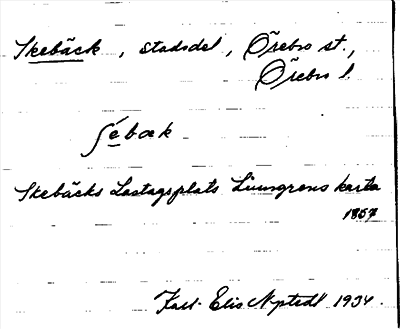 Skebäck, stadsdel, Örebro st.,
Örebro l.
ʃèbæk
Skebäcks Lastageplats Ljunggrens karta
1857
Karl-Elis Nystedt 1934.